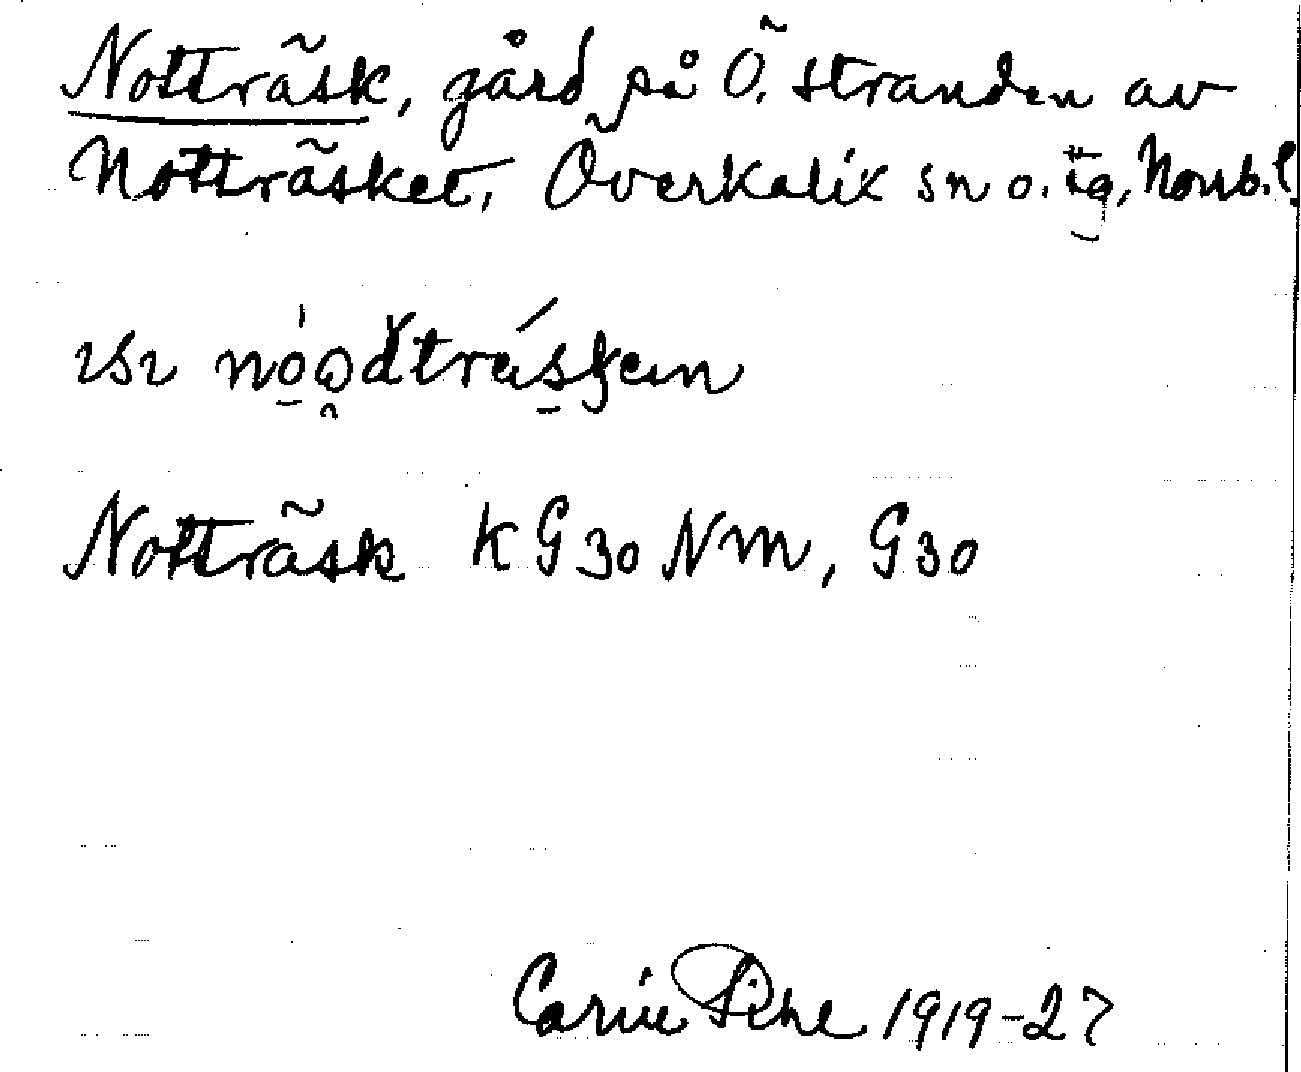 Notträsk, gård på Ö. stranden av
Notträsket, Överkalix sn o. tg, Norrb. l.
Notträsk KG30 NM, G30
Carin Pihl 1919-27